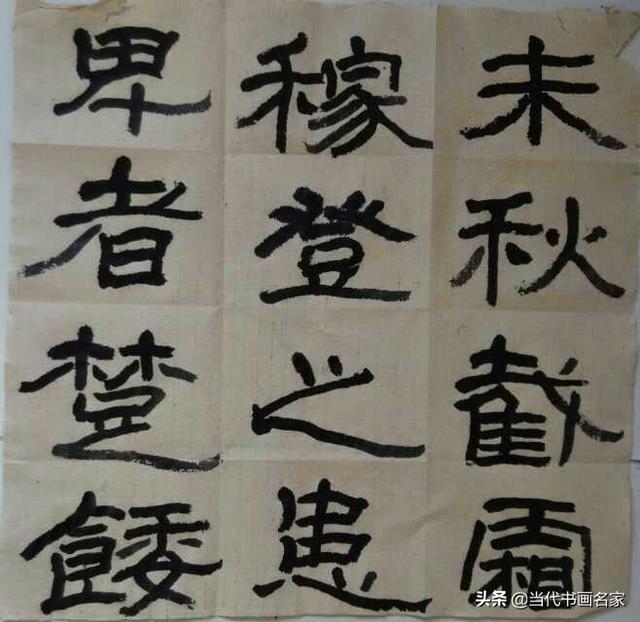 未秋截霜
稼登之患
卑者楚餧
头条 @当代书画名家